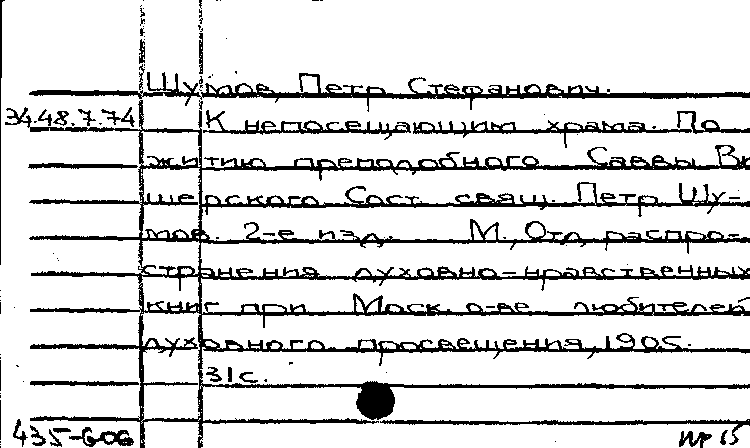 Шумов, Петр Стефанович.
34.48.7.74 К непосещающим храма. По
житию преподобного Саввы Ви
шерского. Сост. свящ. Петр Шу-
мов. 2-е изд. М., Отд. распро-
странения духовно-нравственных
книг при Моск. о-ве любителей
духовного просвещения, 1905.
31с.
435-606